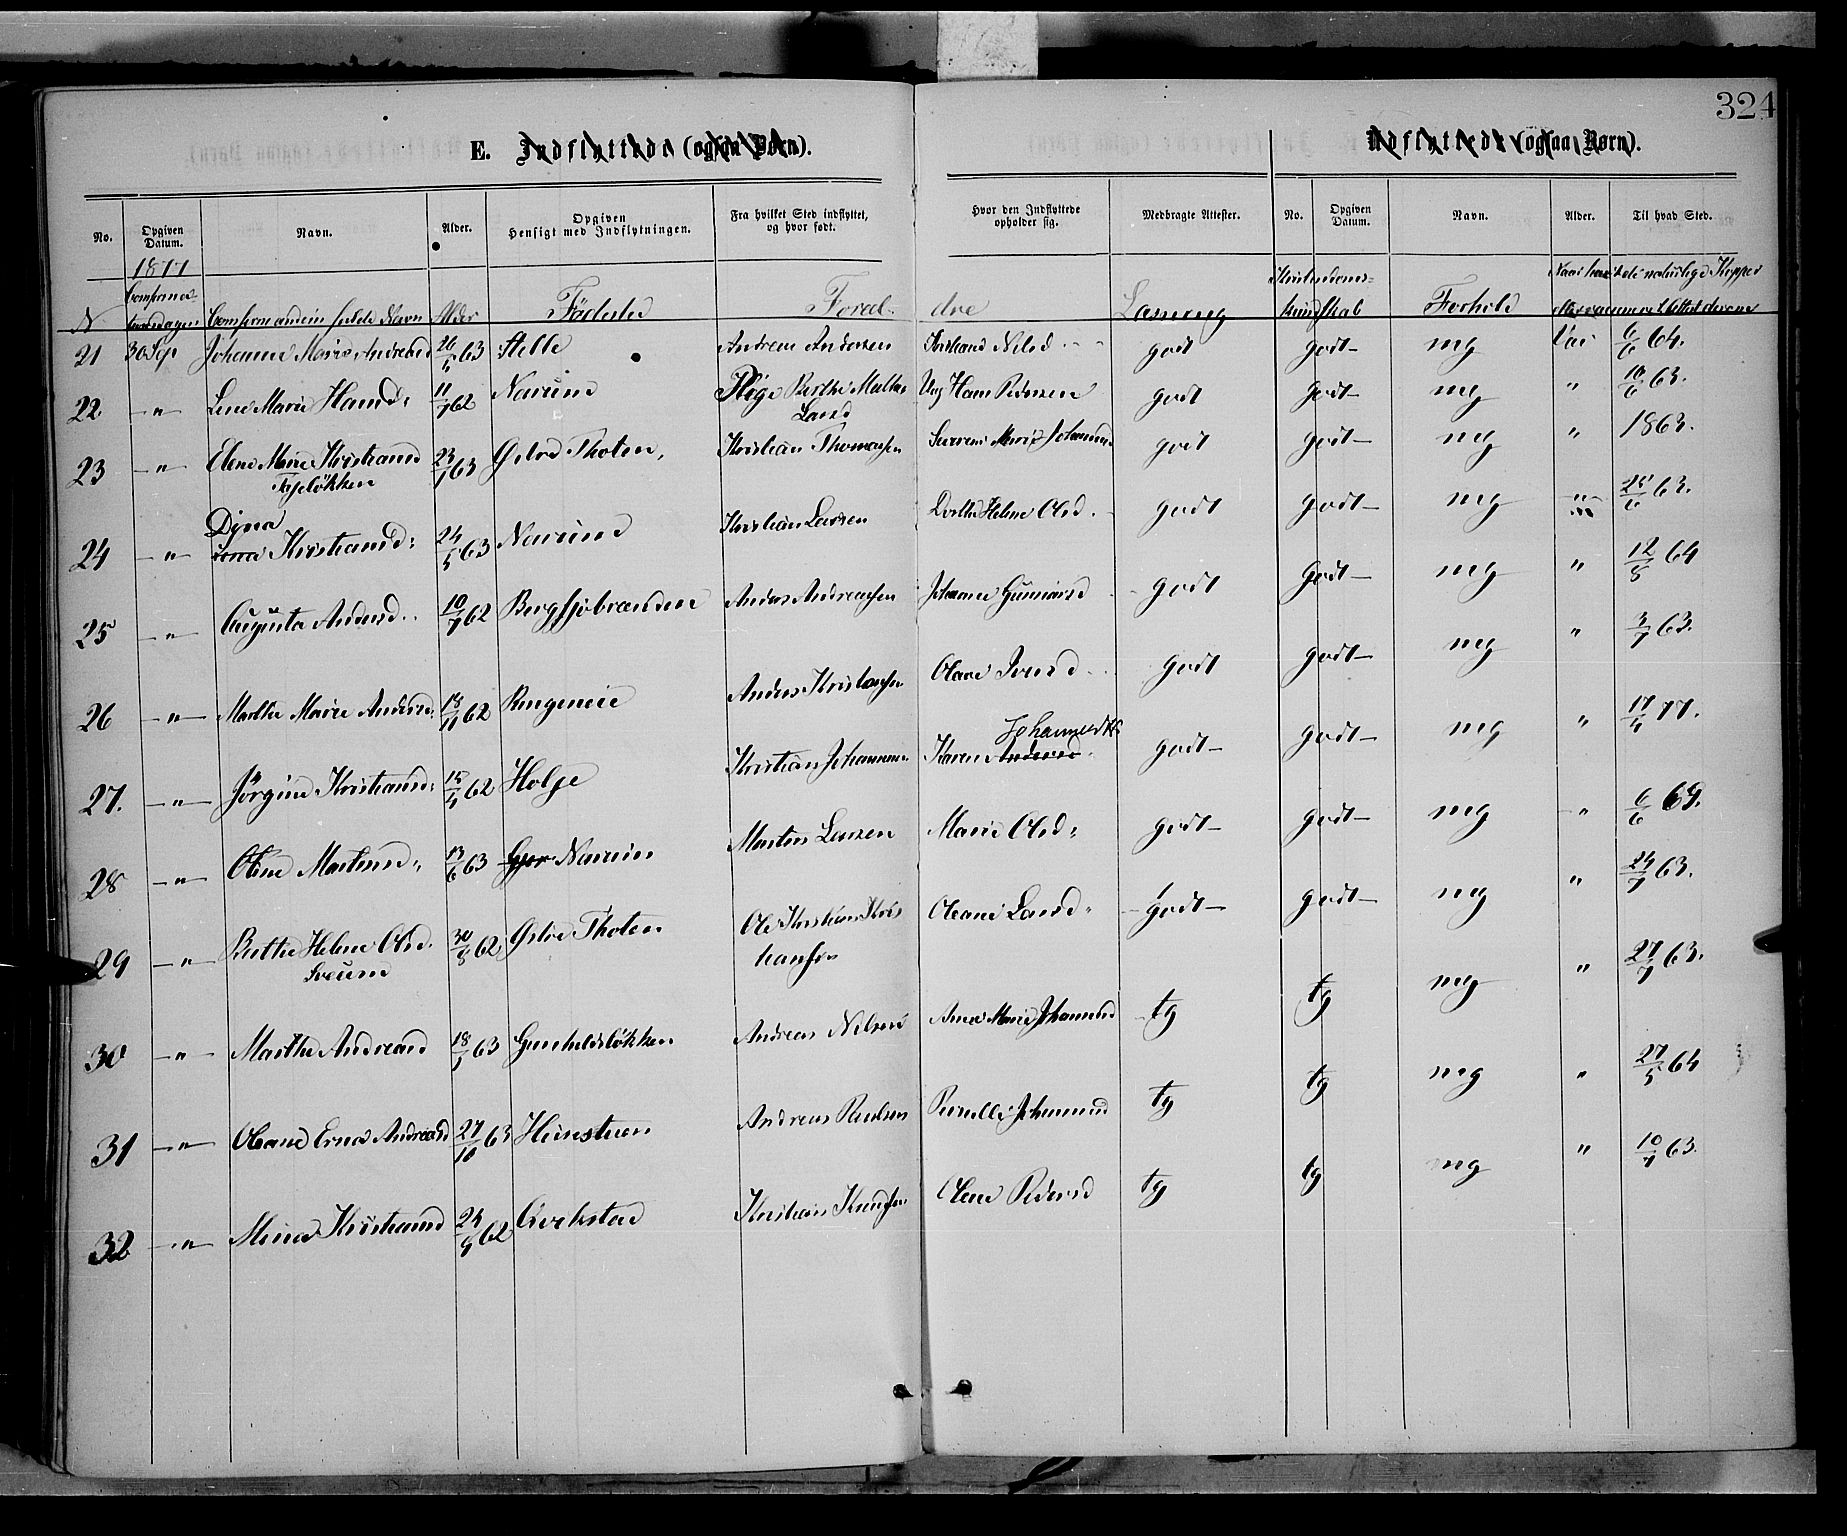 324
E. Indflyttede (ogsaa Børn).
Udflyttede (ogsaa Børn).
No. Opgiven Datum. Navn. Alder. Opgiven Hensigt med Indflytningen. Fra hvilket Sted indflyttet, og hvor født. Hvor den Indflyttede opholder sig. Medbragte Attester. No. Opgiven Datum. Navn. Alder. Til hvad Sted.
1877
N Confirmationsdagen Confirmandens fulde Navn Alder Födested Forældre Læsning Kristendomskundskab Forhold Naar havt de naturlige Kopper eller vaccineret
21 30 Sep Johanne Marie Andreasd 63 Helle Andreas Andersen Nilsd godt godt mg Vac 6/6 64.
22 " Lene Marie Hansd: 11/7 62 Narum Pige Berthe Larsd Ung Hans Pedersen godt godt mg " 10/6 63.
23 " Elene Marie Kristiansd Fajeløkken 23/1 63 Østre Thoten, Kristian Thomassen Marie Johannesd godt godt mg " 1863.
24 " Dina Kristiansd: 24/5 63 Narum Kristian Larsen Dorthe Helene Olsd. godt godt mg " 25/6 63.
25 " Augusta Andersd. 10/7 62 Bergsjobraenden Anders Andreassen Johanne Gunnarsd godt godt mg " 12/5 64
26 " Marthe Marie Andersd: 18/11 62 Ringeneie Anders Kristiansen Olave Iversd godt godt mg " 3/7 63.
27. " Jörgine Kristiansd: 15/4 62 Kristian Johannesen Karen Johannesd godt godt mg " 17/4 77.
28 " Oline Martinsd: 13/6 63 Narum Martin Larsen Marie Olsd: godt godt mg " 6/6 69.
29 " Berthe Helene Olsd. Sveum 30/8 62 Østre Thoten Ole Kristian Kristiansen Oleane Larsd. godt godt mg " 24/7 63.
30 " Marthe Andreasd 18/1 63 Gunhildsløkken Andreas Nilsen Anne Marie Johannesd tg tg mg " 27/7 63.
31 " Oleane Erna Andreasd 27/10 63 Hunstuen Andreas Paulsen Pernelle Johannesd tg tg mg " 27/5 64
32 " Mina Kristiansd 24/9 62 Kristian Knudsen Olene Pedersd tg tg mg " 10/7 63.